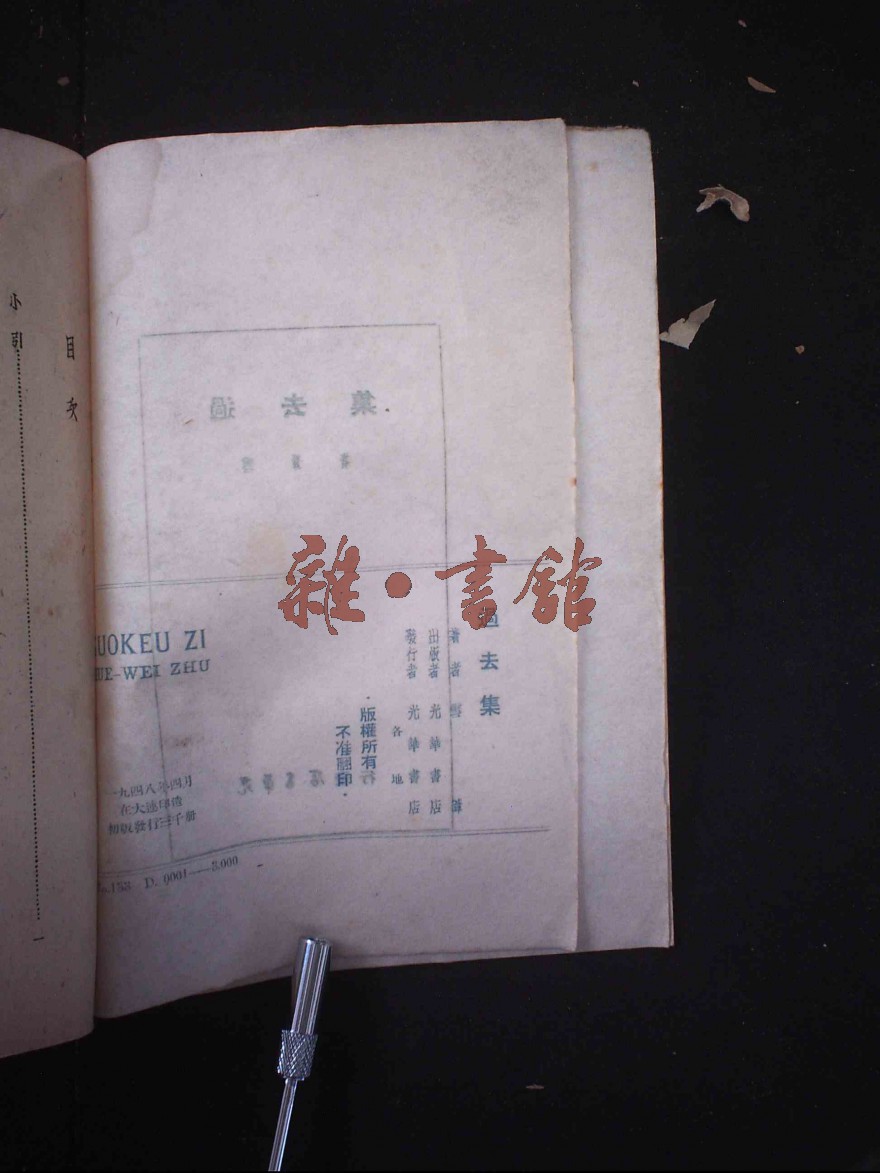 過去集
著者
出版者 光華書店
發行者 光華書店
各地
版權所有
不准翻印
UOKEU ZI
UE-WEI ZHU
一九四八年四月
在大連印造
初版發行三千册
.153 D. 0001—3.000
目次
小引 一
過去集
雜·書館